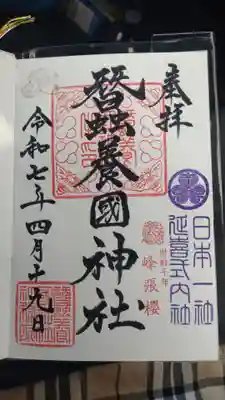 奉拝
日本一社
延喜式内社
峰張櫻
蠶養國神社
令和七年四月十九日